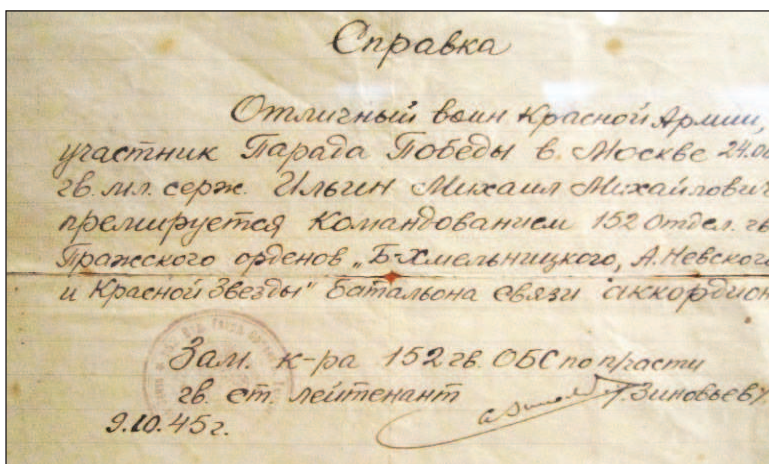 Справка
Отличный воин Красной Армии,
участник Парада Победы в Москве 24.06
гв. мл. серж. Ильин Михаил Михайлович
премируется командованием 152 отдел. гв.
Пражского орденов „Б-Хмельницкого, А.Невского
и Красной Звезды" батальона связи аккордион
Зам. к-ра 152 гв. ОБС по п/части
гв. ст. лейтенант /Зиновьев/
9.10.45г.